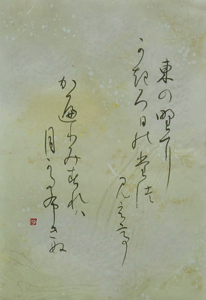 東の野に
かぎろ日のたつ
見えて
かへりみすれハ
月かたぶきぬ